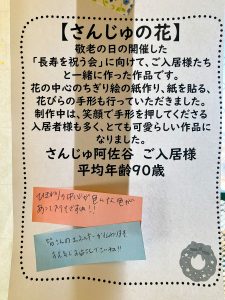 【さんじゅの花】
敬老の日の開催した
「長寿を祝う会」に向けて、ご入居様たち
と一緒に作った作品です。
花の中心のちぎり絵の紙作り、紙を貼る、
花びらの手形も行っていただきました。
制作中は、笑顔で手形を押してくださる
入居者様も多く、とても可愛らしい作品に
なりました。
さんじゅ阿佐谷　ご入居様
平均年齢90歳
皆さんのエネルギーが